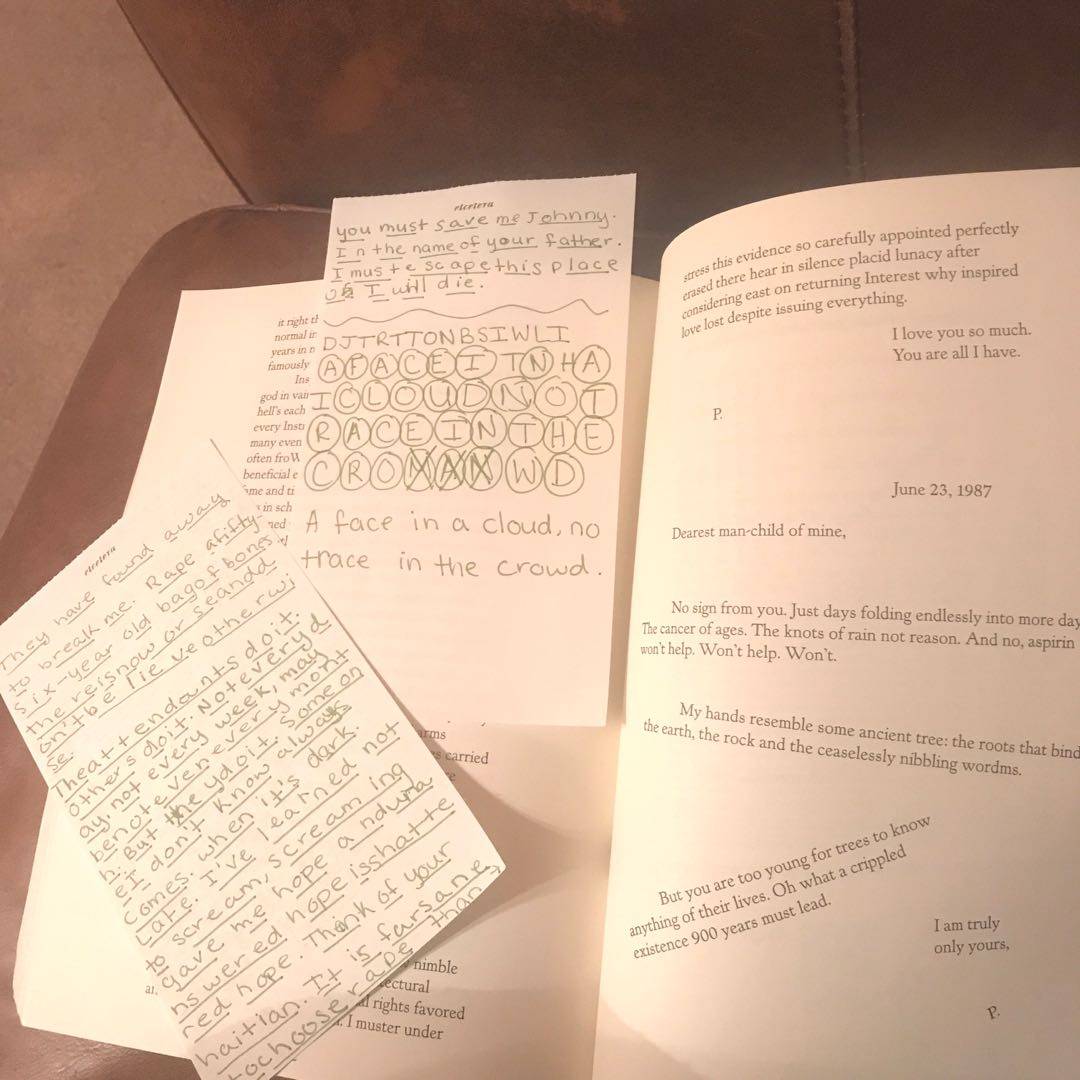 etcetera
you must save me Johnny.
In the name of your father.
I mus t e sc ape this place
I will die.
DJTRTTONBSIWLI
AFACEITNHA
ICLOUDNOT
RACEINTHE
CROMANWD
A face in a cloud, no
trace in the crowd.
etcetera
They have found away
to break me. Rape afifty-
six-year old bagof bones
the reisnow or seandd
on'tbe lie ve otherwi
se.
Theatt endants doit.
others doit. Noteveryd
ay, not every week, may
benot even every mont
hi. But the ydoit. Someon
eI don't know always
comes. when it's dark.
Late. I've learned not
to scream, scream ing
gave me hope andura
ns wer ed hope isshatte
red hope. Think of your
haitian. It is farsane
tochoose rape than
it right th
normal in
years in n
famously
Ins
god in vain
hell's each
every Insti
many even
often fro W
beneficial e
ame and ti
s in sch
ned
arms
s carried
nimble
ectural
al rights favored
. I muster under
stress this evidence so carefully appointed perfectly
erased there hear in silence placid lunacy after
considering east on returning Interest why inspired
love lost despite issuing everything.
I love you so much.
You are all I have.
P.
June 23, 1987
Dearest man-child of mine,
No sign from you. Just days folding endlessly into more day
The cancer of ages. The knots of rain not reason. And no, aspirin
won't help. Won't help. Won't.
My hands resemble some ancient tree: the roots that bind
the earth, the rock and the ceaselessly nibbling wordms.
But you are too young for trees to know
anything of their lives. Oh what a crippled
existence 900 years must lead.
I am truly
only yours,
P.